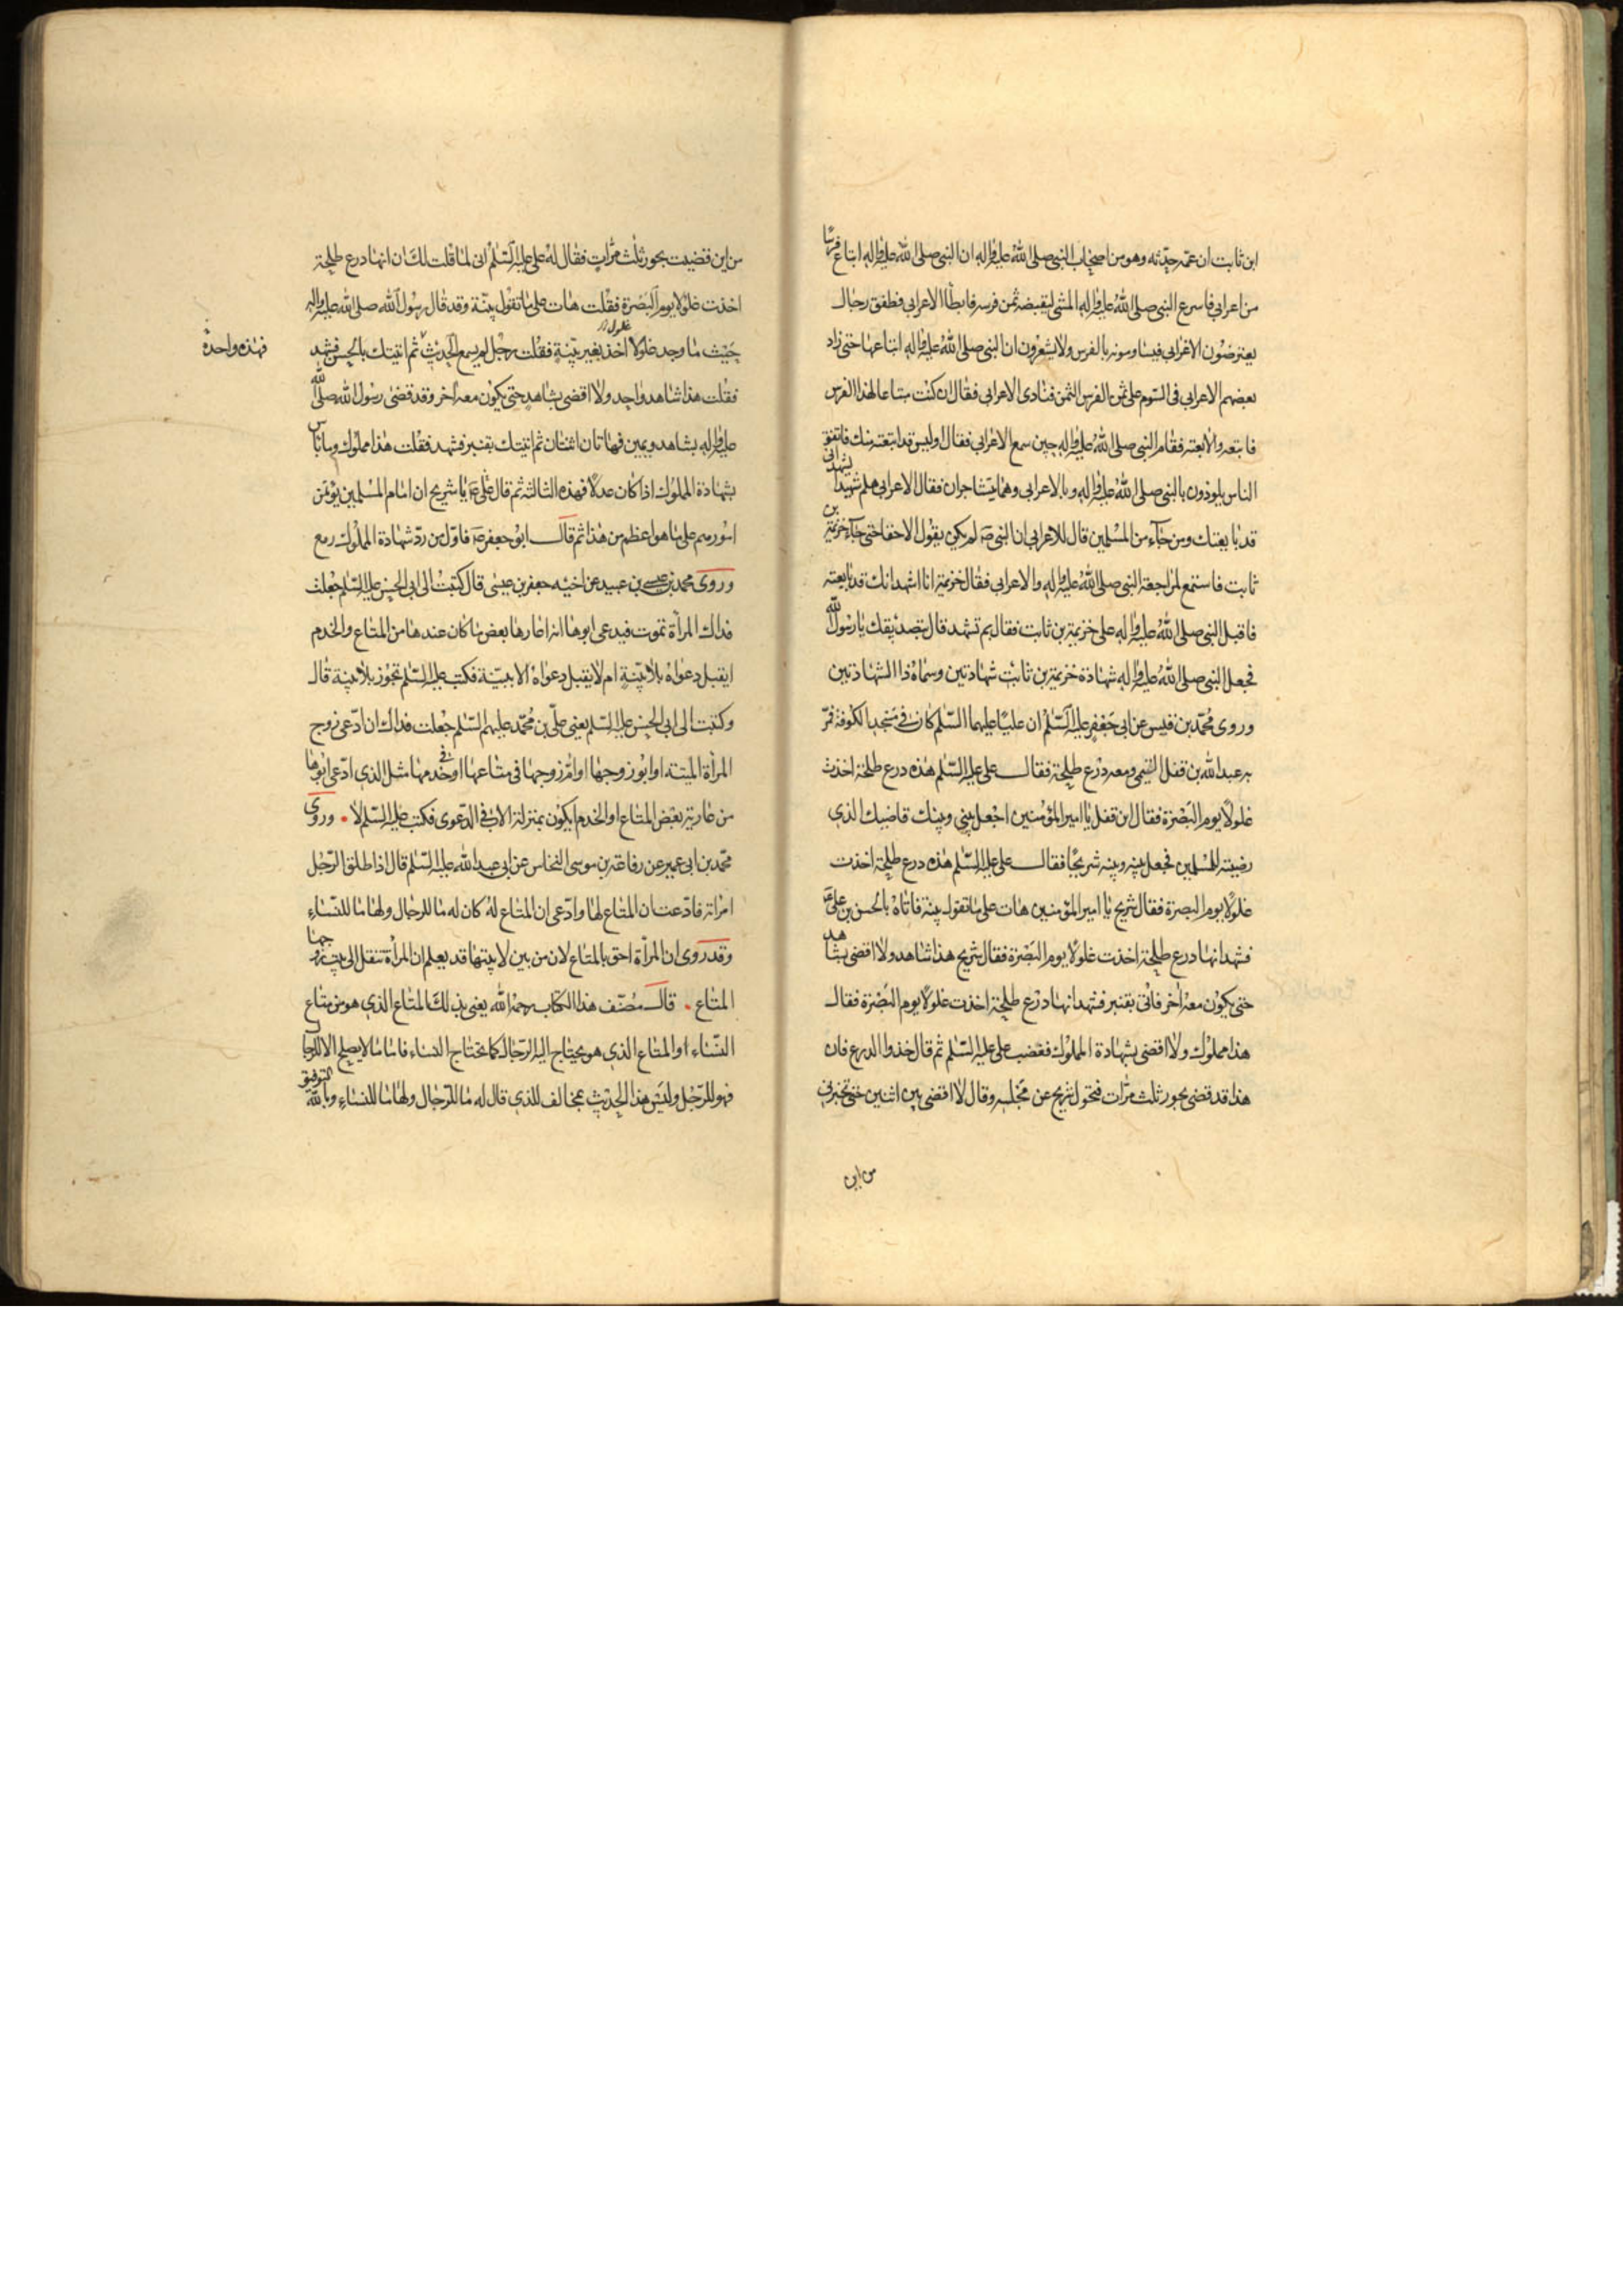 ابن ثابت ان عمّه حدّثه وهو من اصحاب النبي صلى الله عليه واله ان النبي صلى الله عليه واله ابتاع فرسًا
من اعرابي فاسرع النبي صلى الله عليه واله المشي ليقبضه ثمن فرسه فابطأ الاعرابي فطفق رجال
يعترضون الاعرابي فيساومونه بالفرس ولا يشعرون ان النبي صلى الله عليه واله ابتاعها حتى زاد
بعضهم الاعرابي في السّوم على ثمن الفرس الثمن فنادى الاعرابي فقال ان كنت مبتاعا لهذا الفرس
فابتعه والا بعته فقام النبي صلى الله عليه واله حين سمع الاعرابي فقال اوليس قد ابتعته منك فاتفق
الناس يلوذون بالنبي صلى الله عليه واله وبالاعرابي وهما يتشاجران فقال الاعرابي هلم شهيدا يشهد اني
قد بايعتك ومن جآء من المسلمين قال للاعرابي ان النبي صم لم يكن يقول الا حقا حتى جآء خزيمة بن
ثابت فاستمع لمراجعة النبي صلى الله عليه واله والاعرابي فقال خزيمة انا اشهد انك قد بايعته
فاقبل النبي صلى الله عليه واله على خزيمة بن ثابت فقال بم تشهد قال بتصديقك يا رسول الله
فجعل النبي صلى الله عليه واله شهادة خزيمة بن ثابت شهادتين وسماه ذا الشهادتين
وروى محمد بن قيس عن ابي جعفر عليه السّلم ان عليّا عليهما السّلم كان في مسجد الكوفة فمرّ
به عبد الله بن قفل التيمي ومعه درع طلحة فقال علي عليه السّلم هذه درع طلحة اخذت
غلولًا يوم البصرة فقال ابن قفل يا امير المؤمنين اجعل بيني وبينك قاضيك الذي
رضيته للمسلمين فجعل بينه وبينه شريحًا فقال علي عليه السّلم هذه درع طلحة اخذت
غلولًا يوم البصرة فقال شريح يا امير المؤمنين هات على ما تقول بينة فاتاه بالحسن بن علي ع
فشهد انها درع طلحة اخذت غلولًا يوم البصرة فقال شريح هذا شاهد ولا اقضي بشاهد
حتى يكون معه آخر فاتى بقنبر فشهد انها درع طلحة اخذت غلولًا يوم البصرة فقال
هذا مملوك ولا اقضي بشهادة المملوك فغضب علي عليه السّلم ثم قال خذوا الدرع فان
هذا قد قضى بجور ثلث مرّات فتحول شريح عن مجلسه وقال لا اقضي بين اثنين حتى تخبرني
من اين
من اين قضيت بجور ثلث مرّات فقال له علي عليه السّلم اني لما قلت لك ان انها درع طلحة
اخذت غلولا يوم البصرة فقلت هات على ما تقول بيّنة وقد قال رسول الله صلى الله عليه واله
حيث ما وجد غلولًا اخذ بغير بيّنة فقلت رجل لم يسمع الحديث ثم اتيتك بالحسن فشهد
غلول
فهذه واحدة
فقلت هذا شاهد واحد ولا اقضي بشاهد حتى يكون معه آخر وقد قضى رسول الله صلى الله
عليه واله بشاهد ويمين فهاتان اثنتان ثم اتيتك بقنبر فشهد فقلت هذا مملوك وما باس
بشهادة المملوك اذا كان عدلًا فهذه الثالثة ثم قال علي ع يا شريح ان امام المسلمين يؤتمن
امورهم على ما هو اعظم من هذا ثم قال ابو جعفر ع فاوّل من ردّ شهادة المملوك رمع
وروى محمد بن عيسى بن عبيد عن اخيه جعفر بن عيسى قال كتبت الى ابي الحسن عليه السّلم جعلت
فداك المرأة تموت فيدعي ابوها انه اعارها بعض ما كان عندها من المتاع والخدم
ايقبل دعواه بلا بيّنة ام لا يقبل دعواه الا ببيّنة فكتب عليه السّلم تجوز بلا بيّنة قال
وكتبت الى ابي الحسن عليه السّلم يعني علي بن محمّد عليهم السّلم جعلت فداك ان ادّعى زوج
المرأة الميتة او ابو زوجها او امّ زوجها في متاعها او في خدمها مثل الذي ادّعى ابوها
من عارية بعض المتاع او الخدم ايكون بمنزلة الاب في الدّعوى فكتب عليه السّلم لا وروى
محمّد بن ابي عمير عن رفاعة بن موسى النخاس عن ابي عبد الله عليه السّلم قال اذا طلق الرّجل
امراته فادّعت ان المتاع لها وادّعى ان المتاع له كان له ما للرجال ولها ما للنّساء
وقد روى ان المرأة احق بالمتاع لان من بين لابيتها قد يعلم ان المرأة تنقل الى بيت زوجها
المتاع قال مصنّف هذا الكتاب رحمه الله يعني بذلك المتاع الذي هو من متاع
النّساء او المتاع الذي هو يحتاج اليه الرّجال كما يحتاج النساء فاما ما لا يصلح الا للرجال
فهو للرّجل وليس هذا الحديث بمخالف للذي قال له ما للرّجال ولها ما للنساء وبالله التوفيق